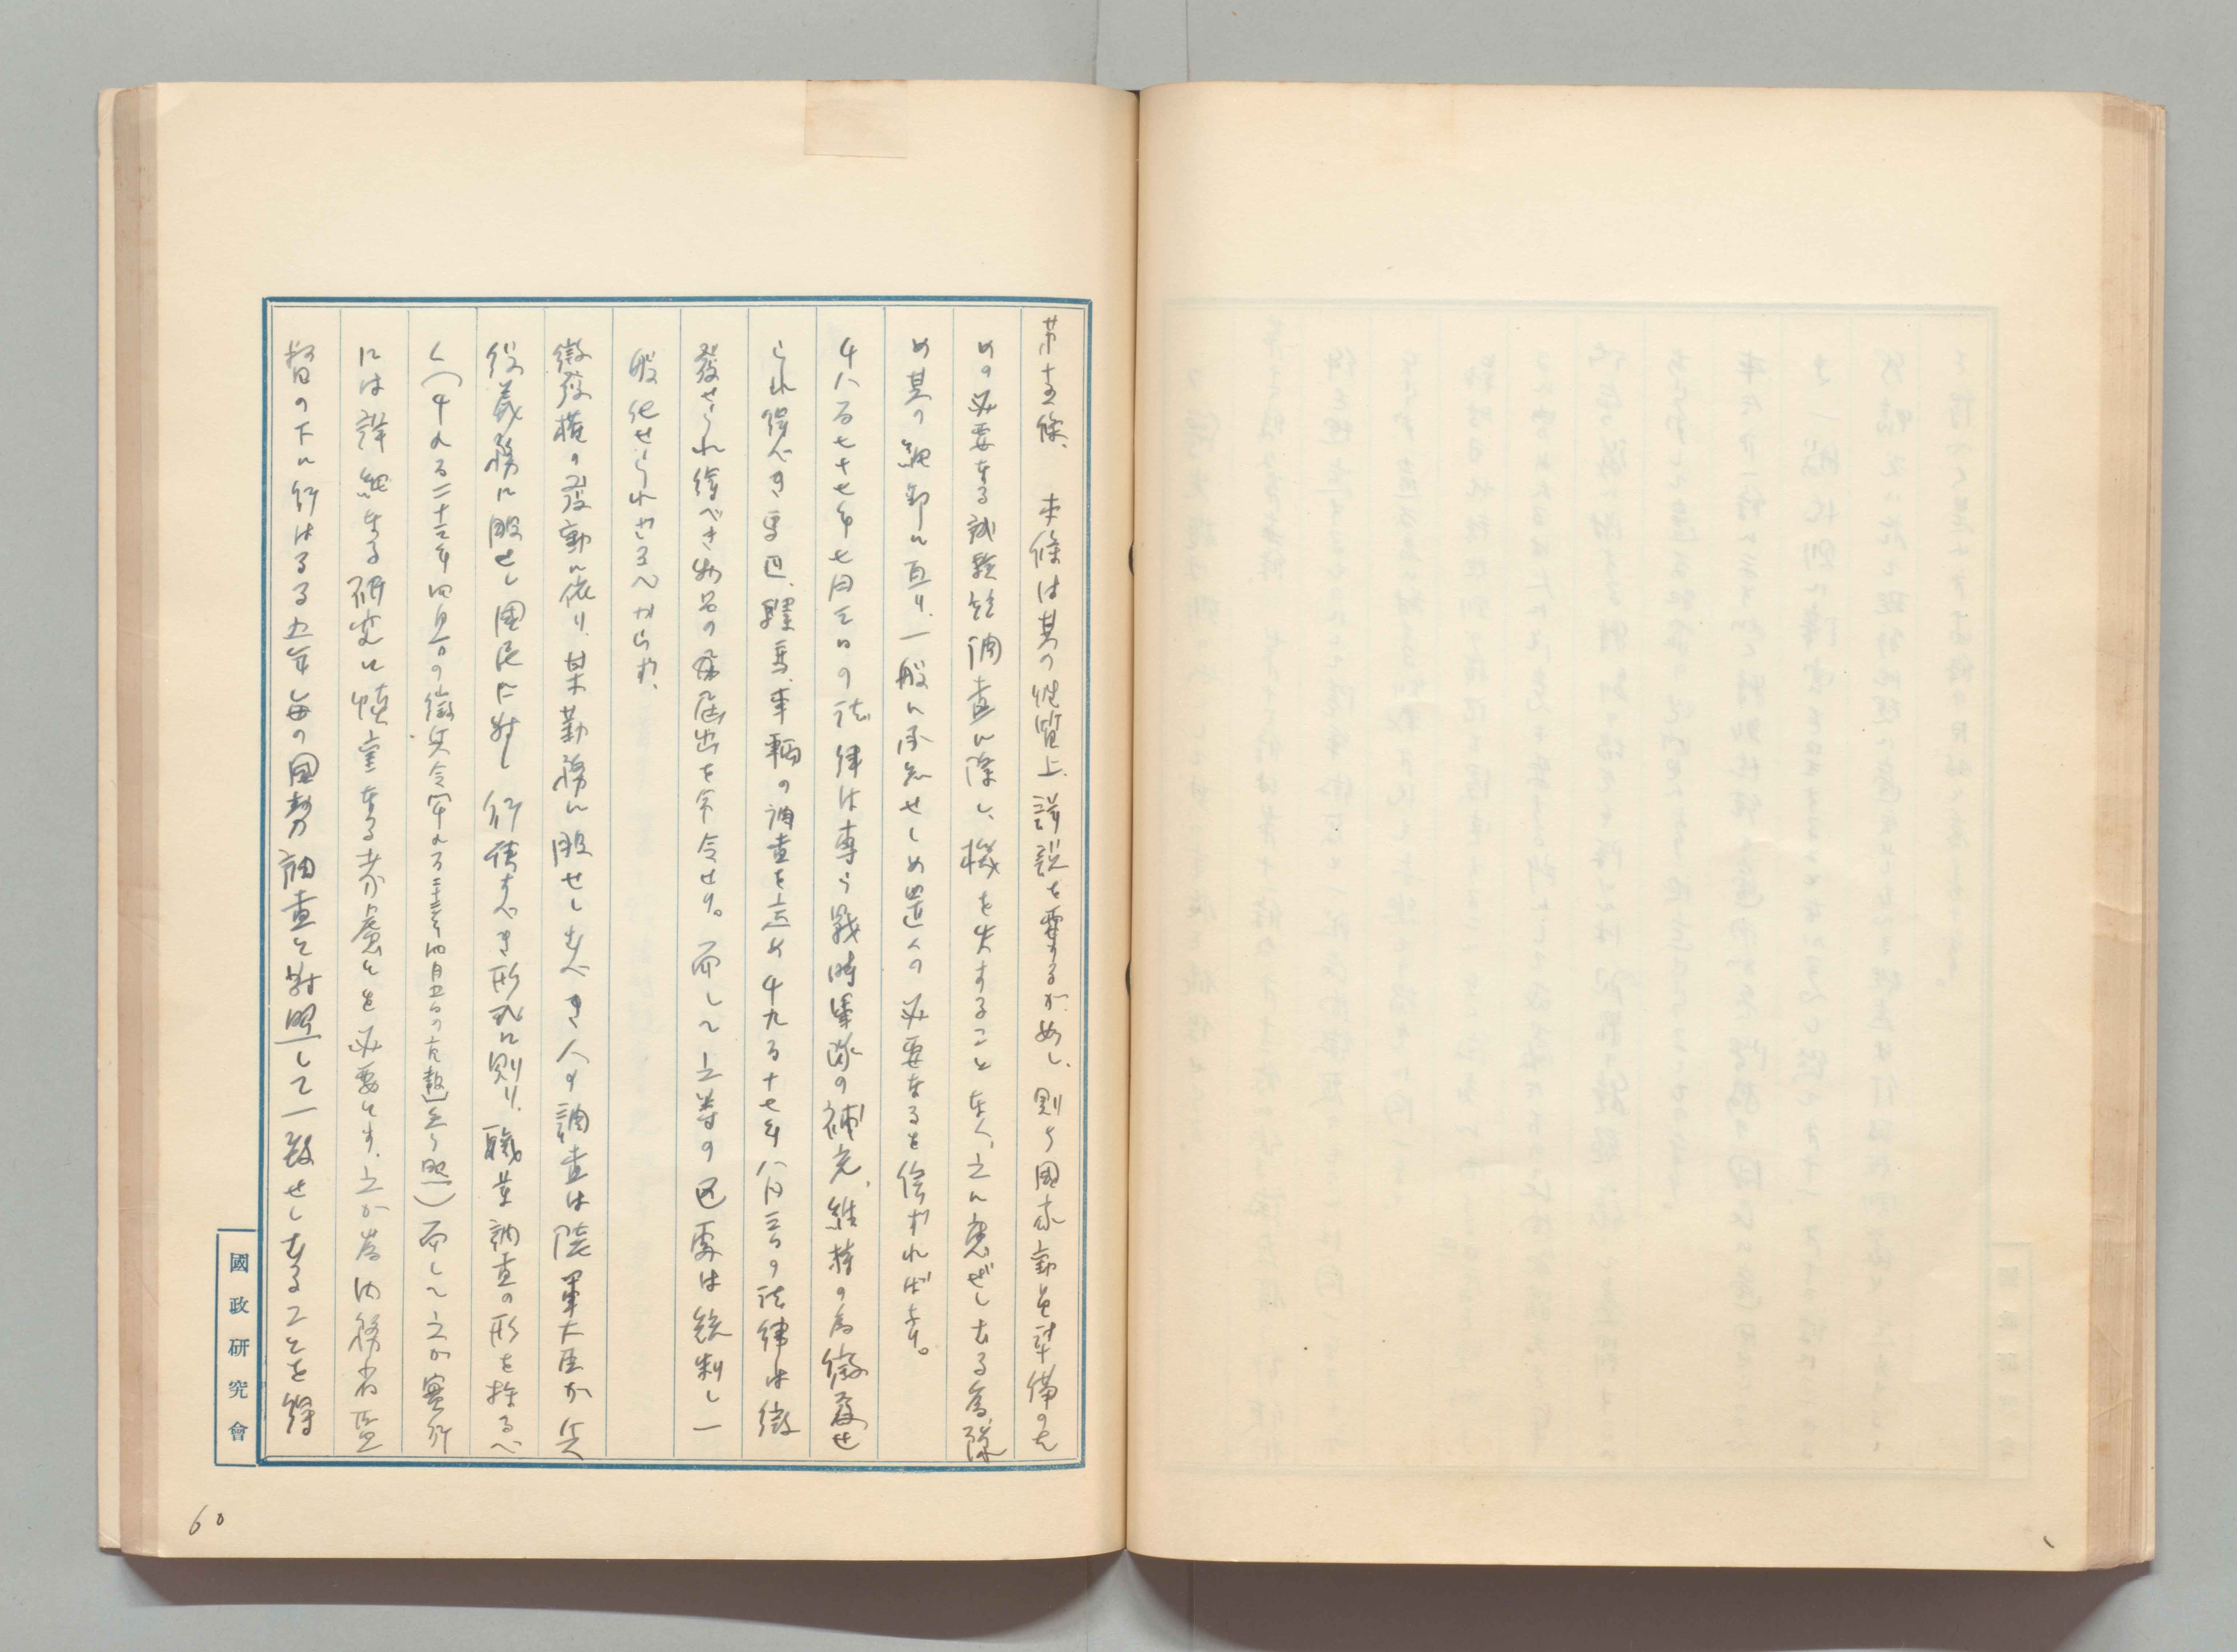 第十五條、 本條は其の性質上、詳説を要するが如し、則ち國家動員準備のた
めの必要なる試驗的調査に際し、機を失することなく、之に應ぜしむる為、豫
め其の細部に亘り、一般に承知せしめ置くの必要なるを信ずればなり。
千八百七十七年七月三日の法律は専ら戰時軍隊の補充、維持の為徴發せ
られ得べき馬匹、騾馬、車輛の調査を定め千九百十七年八月三日の法律は徴
發せられ得べき物品の届出を命令せり。而して之等の處置は統制し一
般化せられざるべからず、
徴發權の發動に依り、某勤務に服せしむべき人の調査は陸軍大臣か兵
役義務に服せし國民に對し行使すべき形式に則り、職業調査の形を採るべ
く(千九百二十三年四月一日の徴兵令 千九百二十三年四月五日の 参照)而して之か實行
には詳細なる研究と慎重なる考慮とを必要とす、之か為内務省監
督の下に行はるる五年毎の國勢調査と對照して一致せしむることを得
國政研究會
60